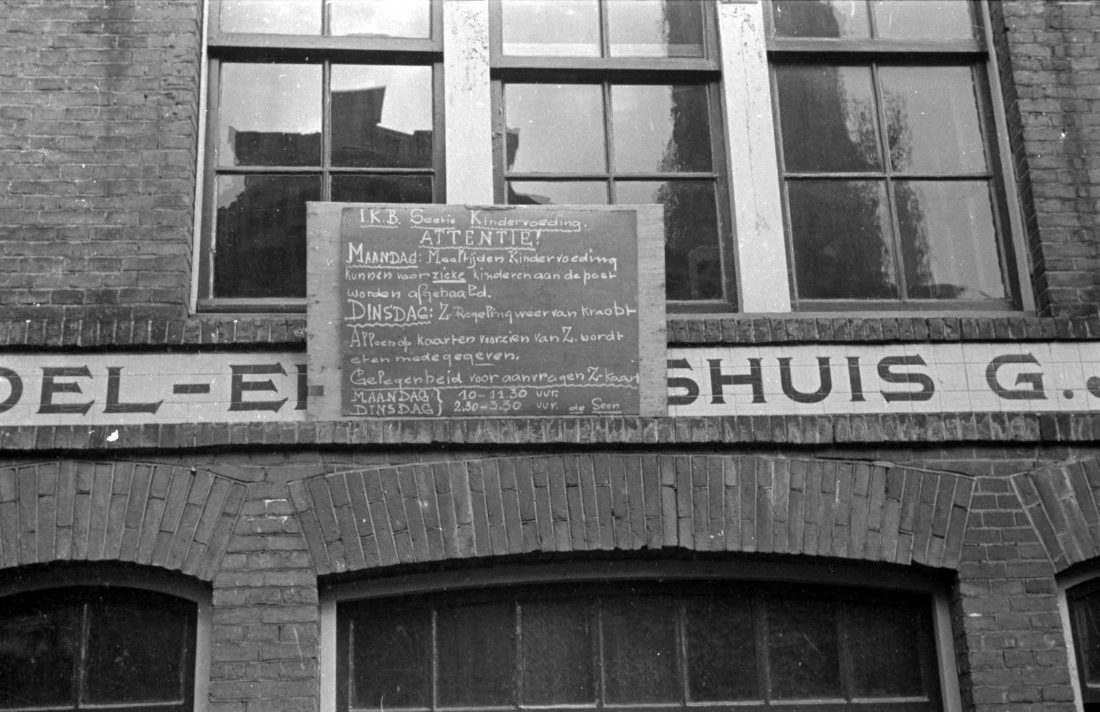 I.K.B. Sectie Kindervoeding.
ATTENTIE!
MAANDAG: Maaltijden Kindervoeding
kunnen voor zieke kinderen aan de post
worden afgehaald.
DINSDAG: Z. Regeling weer van kracht
Alleen op kaarten voorzien van Z. wordt
eten medegegeven.
Gelegenheid voor aanvragen Z-kaart
MAANDAG } 10-11.30 uur.
DINSDAG } 2.30-3.30 uur. de
DEL-E SHUIS G.